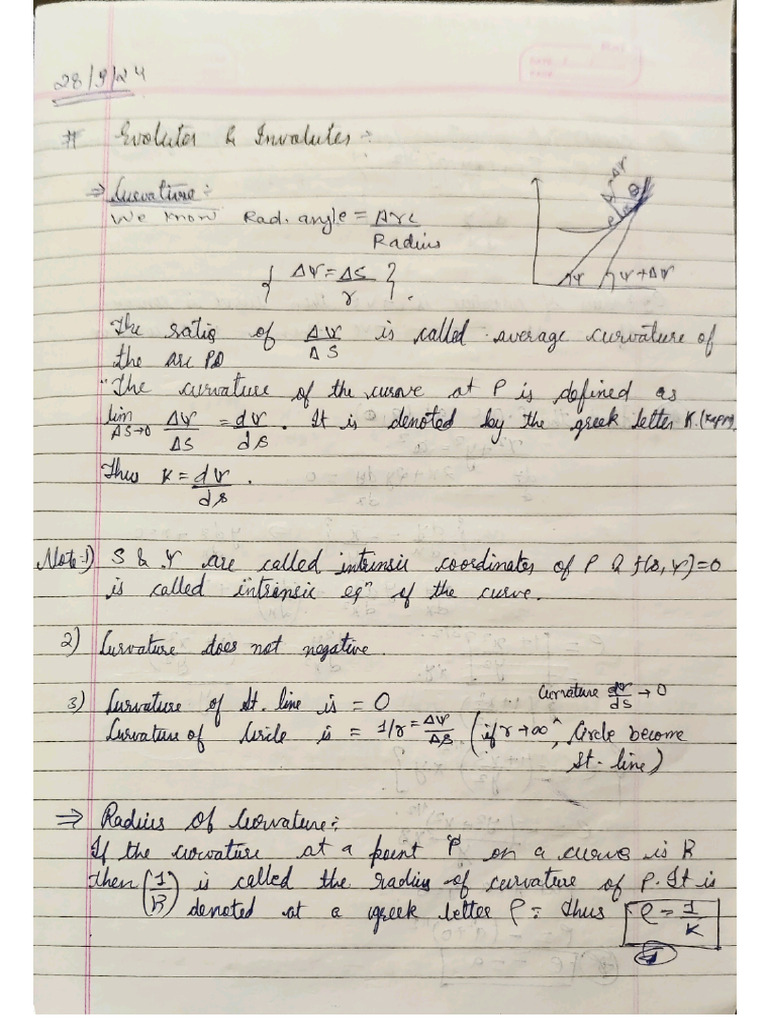 28/9/24
# Evolutes & Involutes :-
⇒ Curvature :-
We know Rad. angle = Arc / Radius
{ Δψ = ΔS / r }.
ψ ψ+Δψ
The ratio of Δψ/ΔS is called average curvature of
the arc PQ
"The curvature of the curve at P is defined as
lim ΔS→0 Δψ/ΔS = dψ/ds . It is denoted by the greek letter K.
Thus K = dψ/ds .
Note-1) S & ψ are called intrinsic coordinates of P & f(s,ψ)=0
is called intrinsic eqn of the curve.
2) Curvature does not negative.
3) Curvature of St. line is = 0 Curvature dψ/ds → 0
Curvature of Circle is = 1/r = Δψ/Δs (if r→∞, Circle become
St. line)
⇒ Radius of Curvature :-
If the curvature at a point P on a curve is K
then (1/K) is called the radius of curvature of P. It is
denoted at a greek letter ρ = thus ρ = 1/K